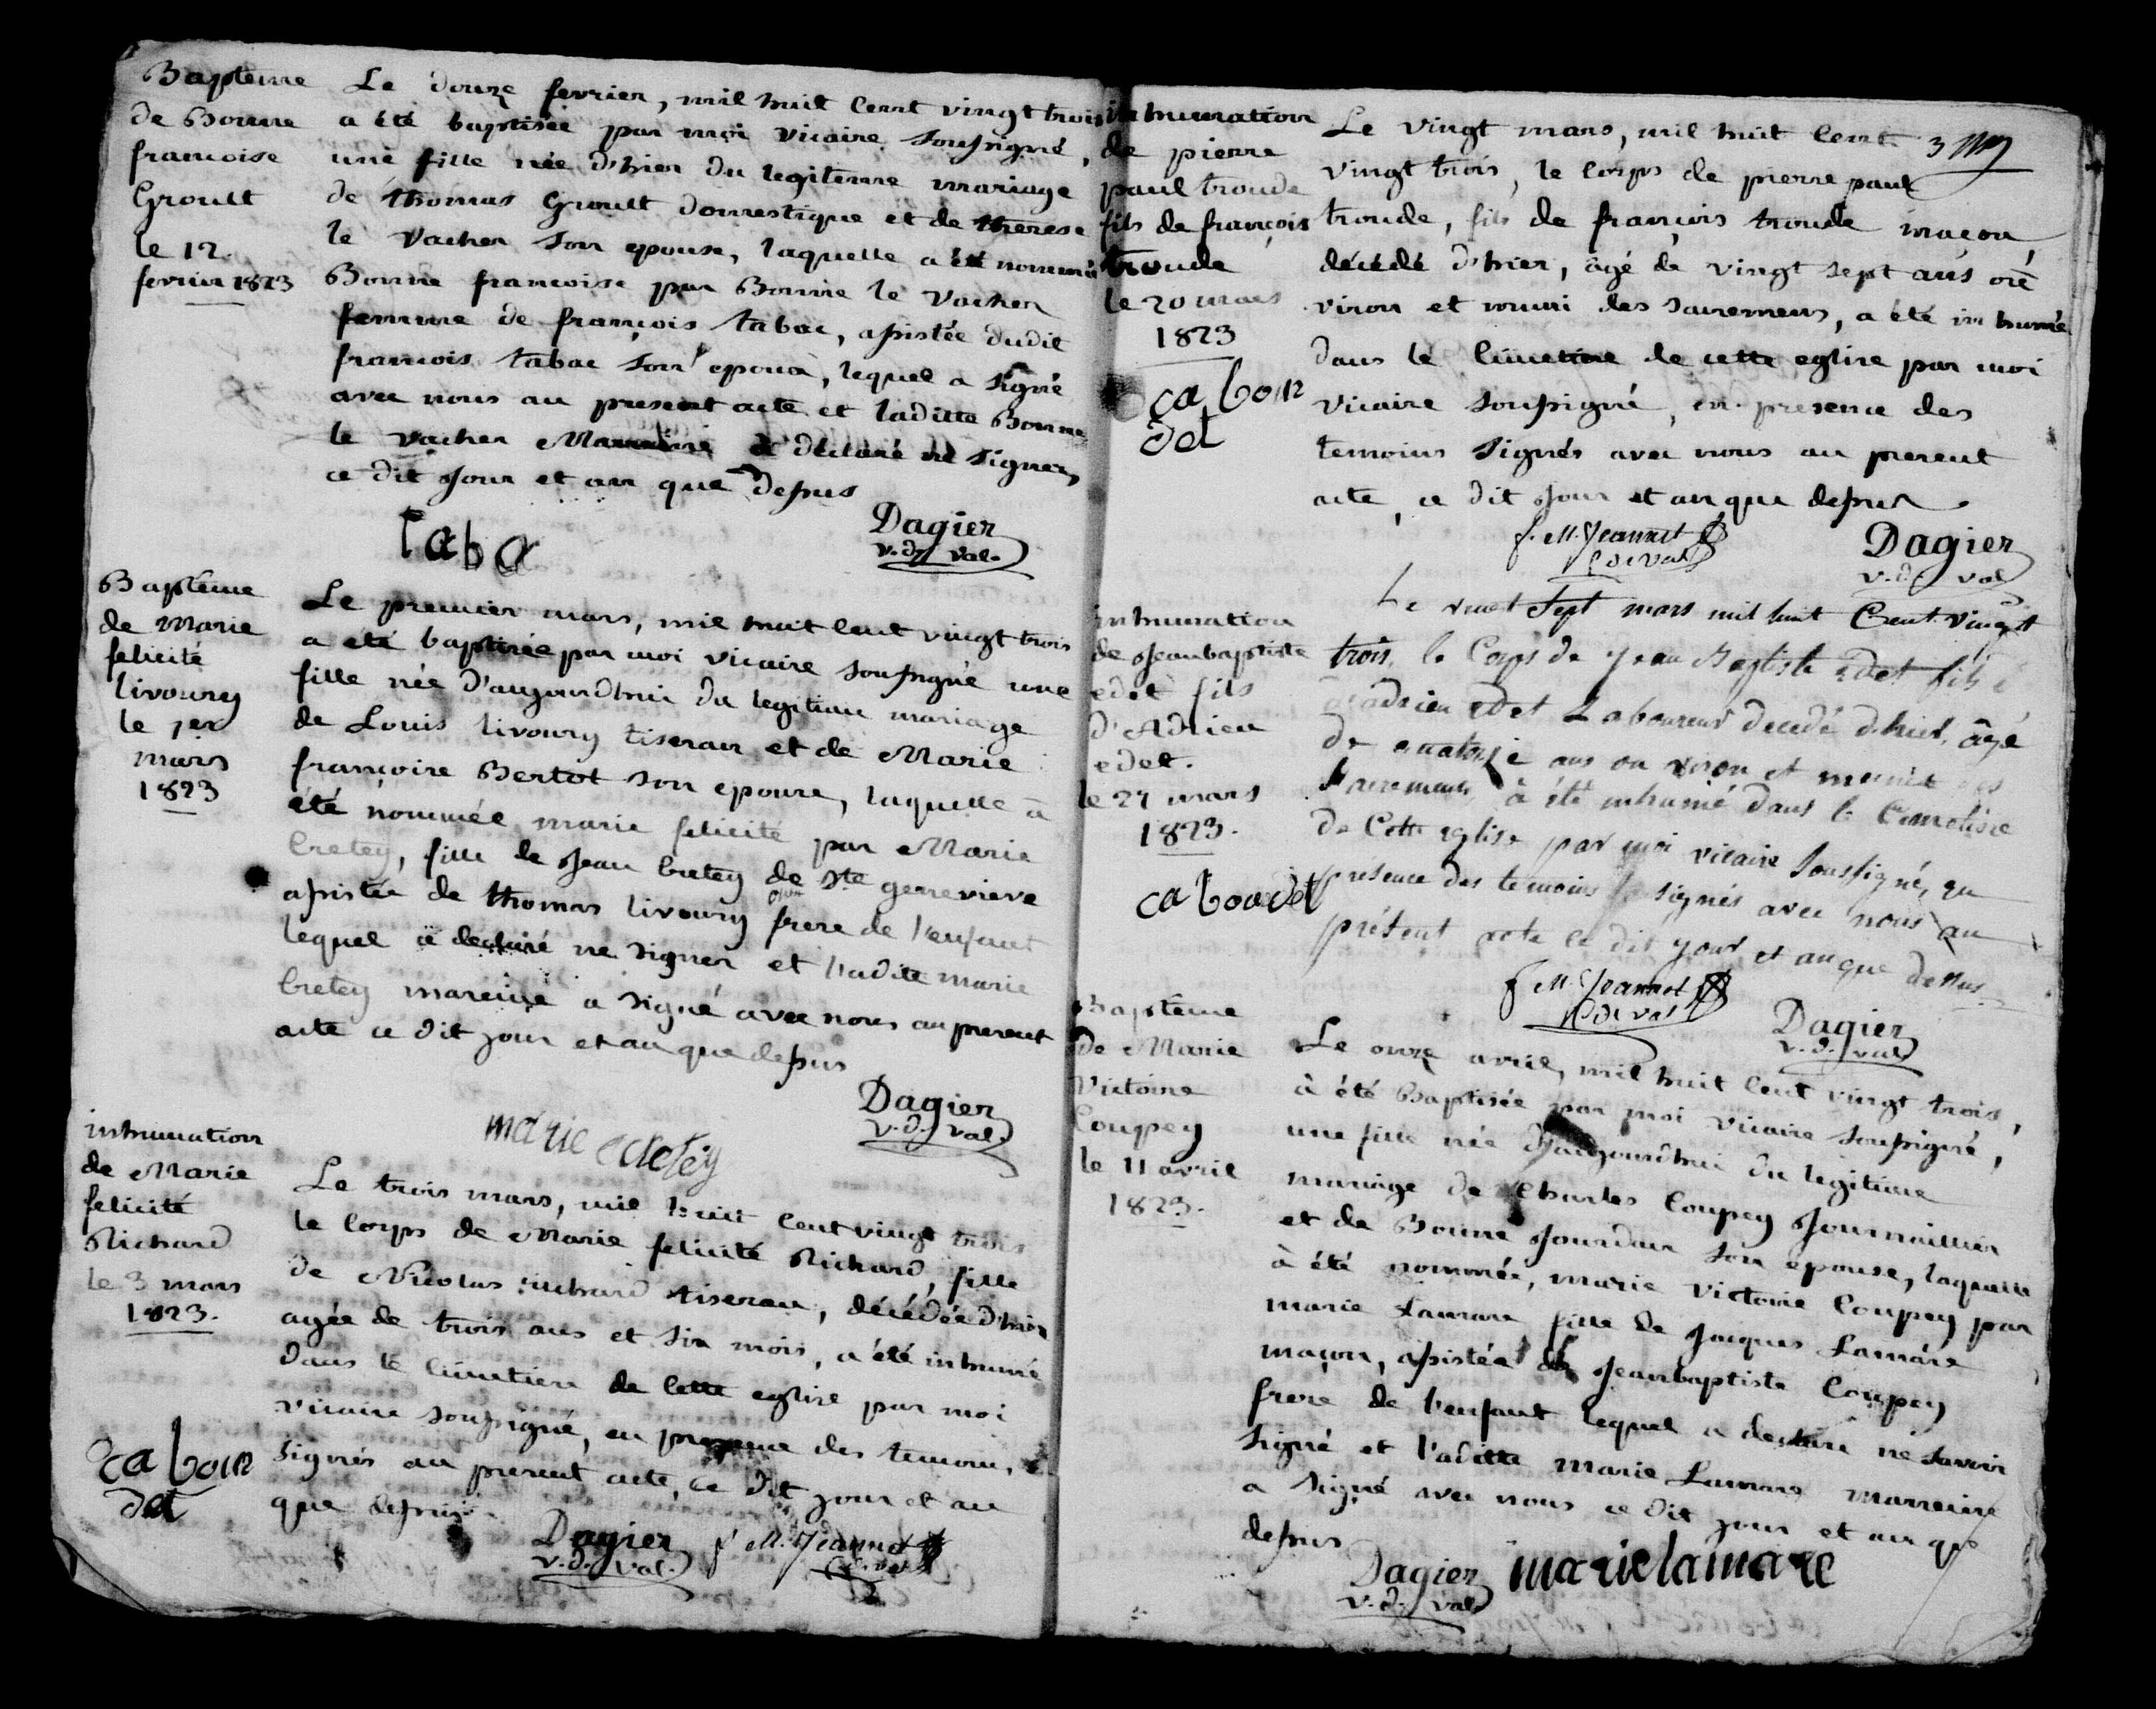 Baptême
de Bonne
francoise
Groult
le 12
fevrier 1823
Le douze fevrier, mil huit cent vingt trois
a été baptisée par moi vicaire soussigné,
une fille née d'hier du legitime mariage
de thomas Groult domestique et de therese
le vacher son epouse, laquelle a été nommée
Bonne francoise par Bonne le vacher
femme de françois tabac, assistée dudit
francois tabac son epoux, lequel a signé
avec nous au present acte et laditte Bonne
le vacher Marraine a déclaré ne signer,
ce dit jour et an que dessus
Taba
Dagier
v. d. val.
Baptême
de Marie
felicité
livoury
le 1er
mars
1823
Le premier mars, mil huit cent vingt trois
a été baptisée par moi vicaire soussigné une
fille née d'aujourdhui du legitime mariage
de Louis livoury tiseran et de Marie
françoise Bertot son epouse, laquelle a
été nommée marie felicité par Marie
bretey, fille de Jean bretey de Ste genevieve
assistée de thomas livoury frere de l'enfant
lequel a declaré ne signer et l'aditte marie
bretey mareine a signé avec nous au present
acte ce dit jour et an que dessus
marie
Dagier
v. d. val.
inhumation
de Marie
felicité
Richard
le 3 mars
1823.
ca bour
det
Le trois mars, mil huit cent vingt trois
le corps de Marie felicité Richard, fille
de Nicolas richard tiseran, décédée d'hier
agée de trois ans et six mois, a été inhumé
dans le cimetiere de cette eglise par moi
vicaire soussigné, en presence des temoins,
signés au present acte, ce dit jour et an
que dessus.
Dagier
v. d. val.
f. M. Jeannet
inhumation
de pierre
paul troude
fils de françois
troude
le 20 mars
1823
ca bour
det
3
Le vingt mars, mil huit cent
vingt trois, le corps de pierre paul
troude, fils de françois troude maçon,
décédé d'hier, âgé de vingt sept ans on
viron et muni des sacremens, a été inhumé
dans le cimetiere de cette eglise par moi
vicaire soussigné, en presence des
temoins signés avec nous au present
acte, ce dit jour et an que dessus.
f. M. Jeannet
c de val
Dagier
v. d. val
inhumation
de Jeanbaptiste
edet fils
d'Adrien
edet.
le 27 mars
1823.
ca bourdet
Le vingt sept mars mil huit Cent vingt
trois, le Corps de jean Baptiste edet fils
d'adrien edet Laboureur decedé d'hier, âgé
de quatorze ans on viron et munit des
sacremens à été inhumé dans le Cimetiére
de Cette eglise par moi vicaire soussigné, en
présence des temoins signés avec nous au
présent acte le dit jour et an que dessus
f M. Jeannet
c de val
Dagier
v. d. val
Baptême
De Marie
Victoire
Coupey
le 11 avril
1823.
Le onze avril, mil huit cent vingt trois,
à été Baptisée par moi vicaire soussigné,
une fille née d'aujourdhui du legitime
mariage de Charles Coupey Journaillier
et de Bonne Jourdan son epouse, laquelle
à été nommée, marie victoire Coupey par
marie Lamare fille de Jacques Lamare
maçon, assistée de Jeanbaptiste Coupey
frere de l'enfant lequel a declaré ne savoir
signé et l'aditte marie Lamare marreine
a signé avec nous ce dit jour et an que
dessus
Dagier
v. d. val
marie lamare